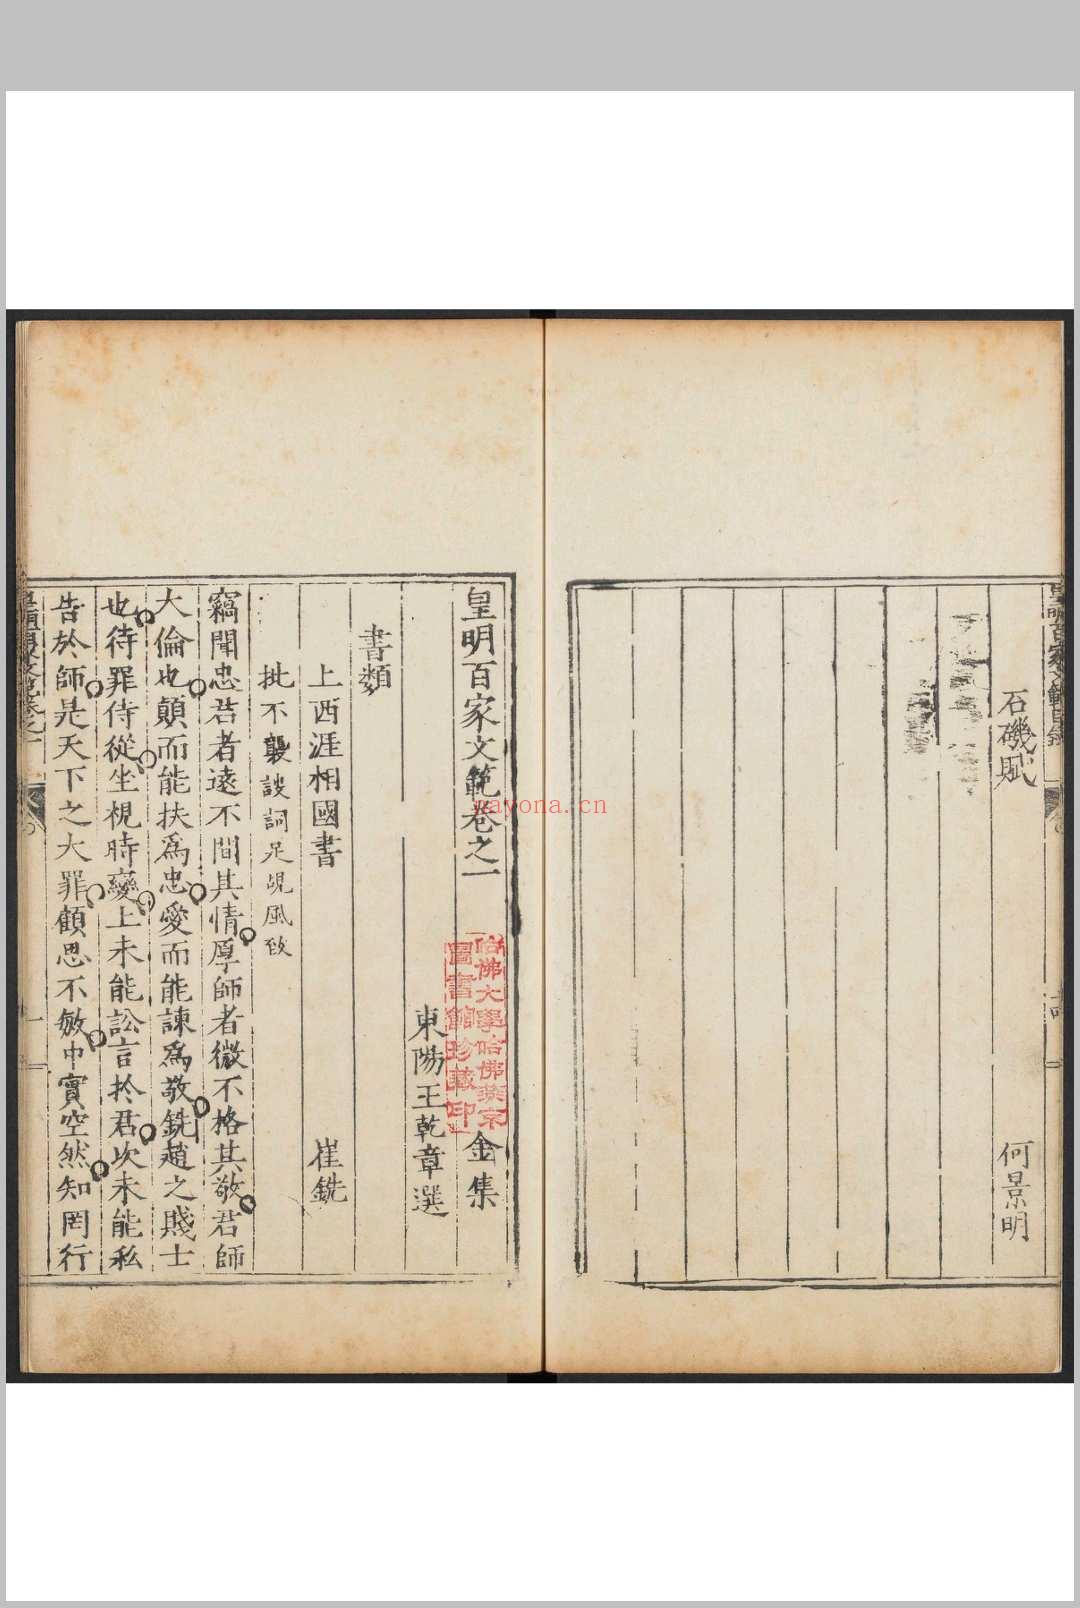 石磯賦 何景明
皇明百家文範卷之一 金集
哈佛大學哈佛燕京
圖書館珍藏印
東陽王乾章選
書類
上西涯相國書 崔銑
批不襲諛詞足覘風致
竊聞忠君者遠不間其情厚師者微不格其敬君師
大倫也顛而能扶爲忠愛而能諫爲敬銑趙之賤士
也待罪侍從坐視時變上未能訟言於君次未能私
告於師是天下之大罪顧思不敏中實空然知罔行
nayona.cn